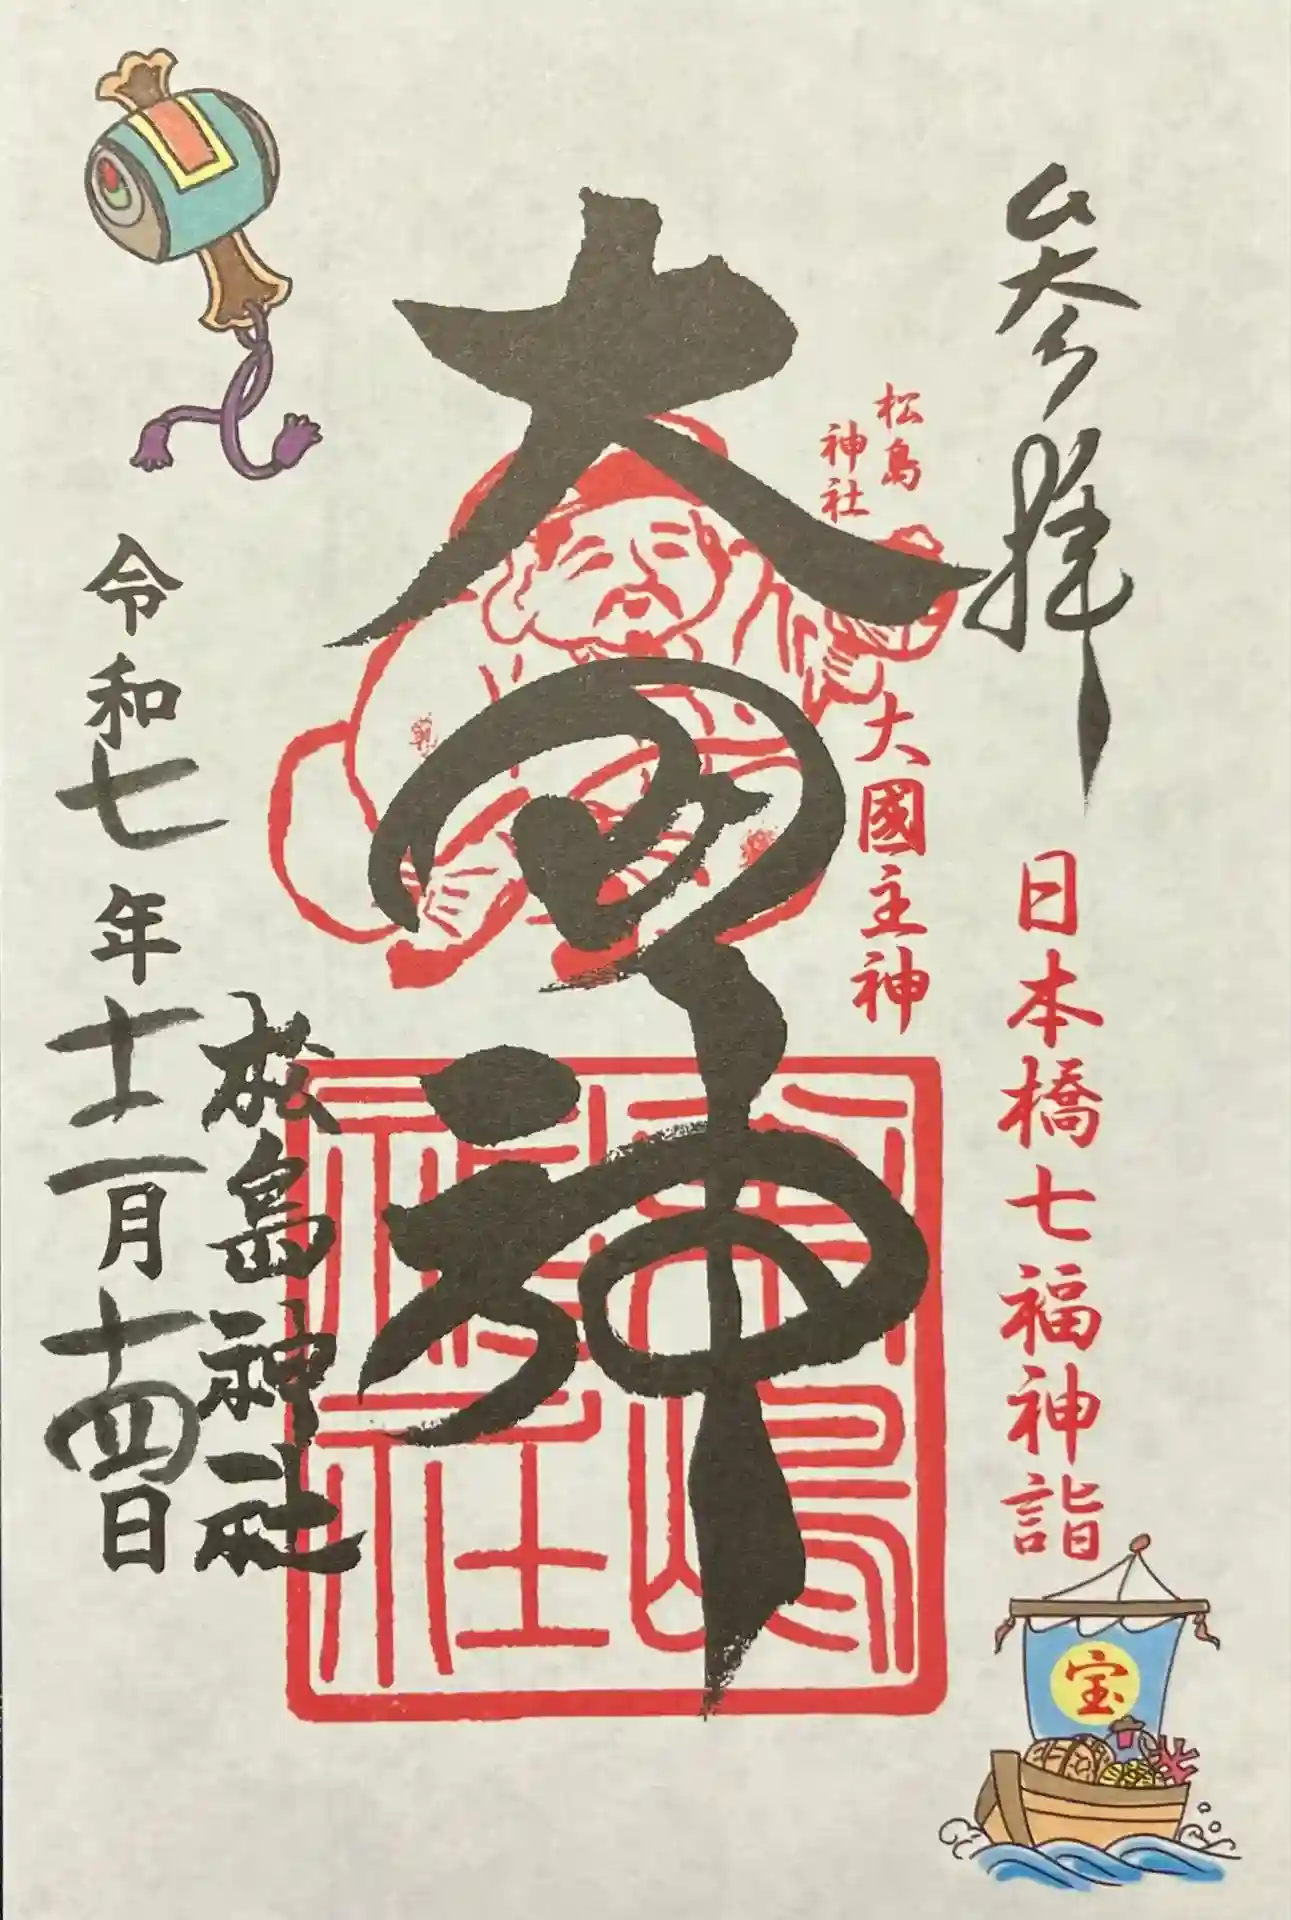 参拝
日本橋七福神詣
松島
神社
大國主神
大国神
松島神社
松島神社
令和七年十一月十四日
宝